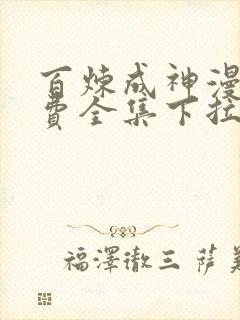 百炼成神漫
费全集下拉
福澤徹三 萨美